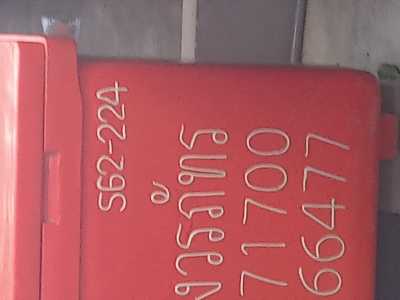 S62-224
งวรภัทร
71700
66477